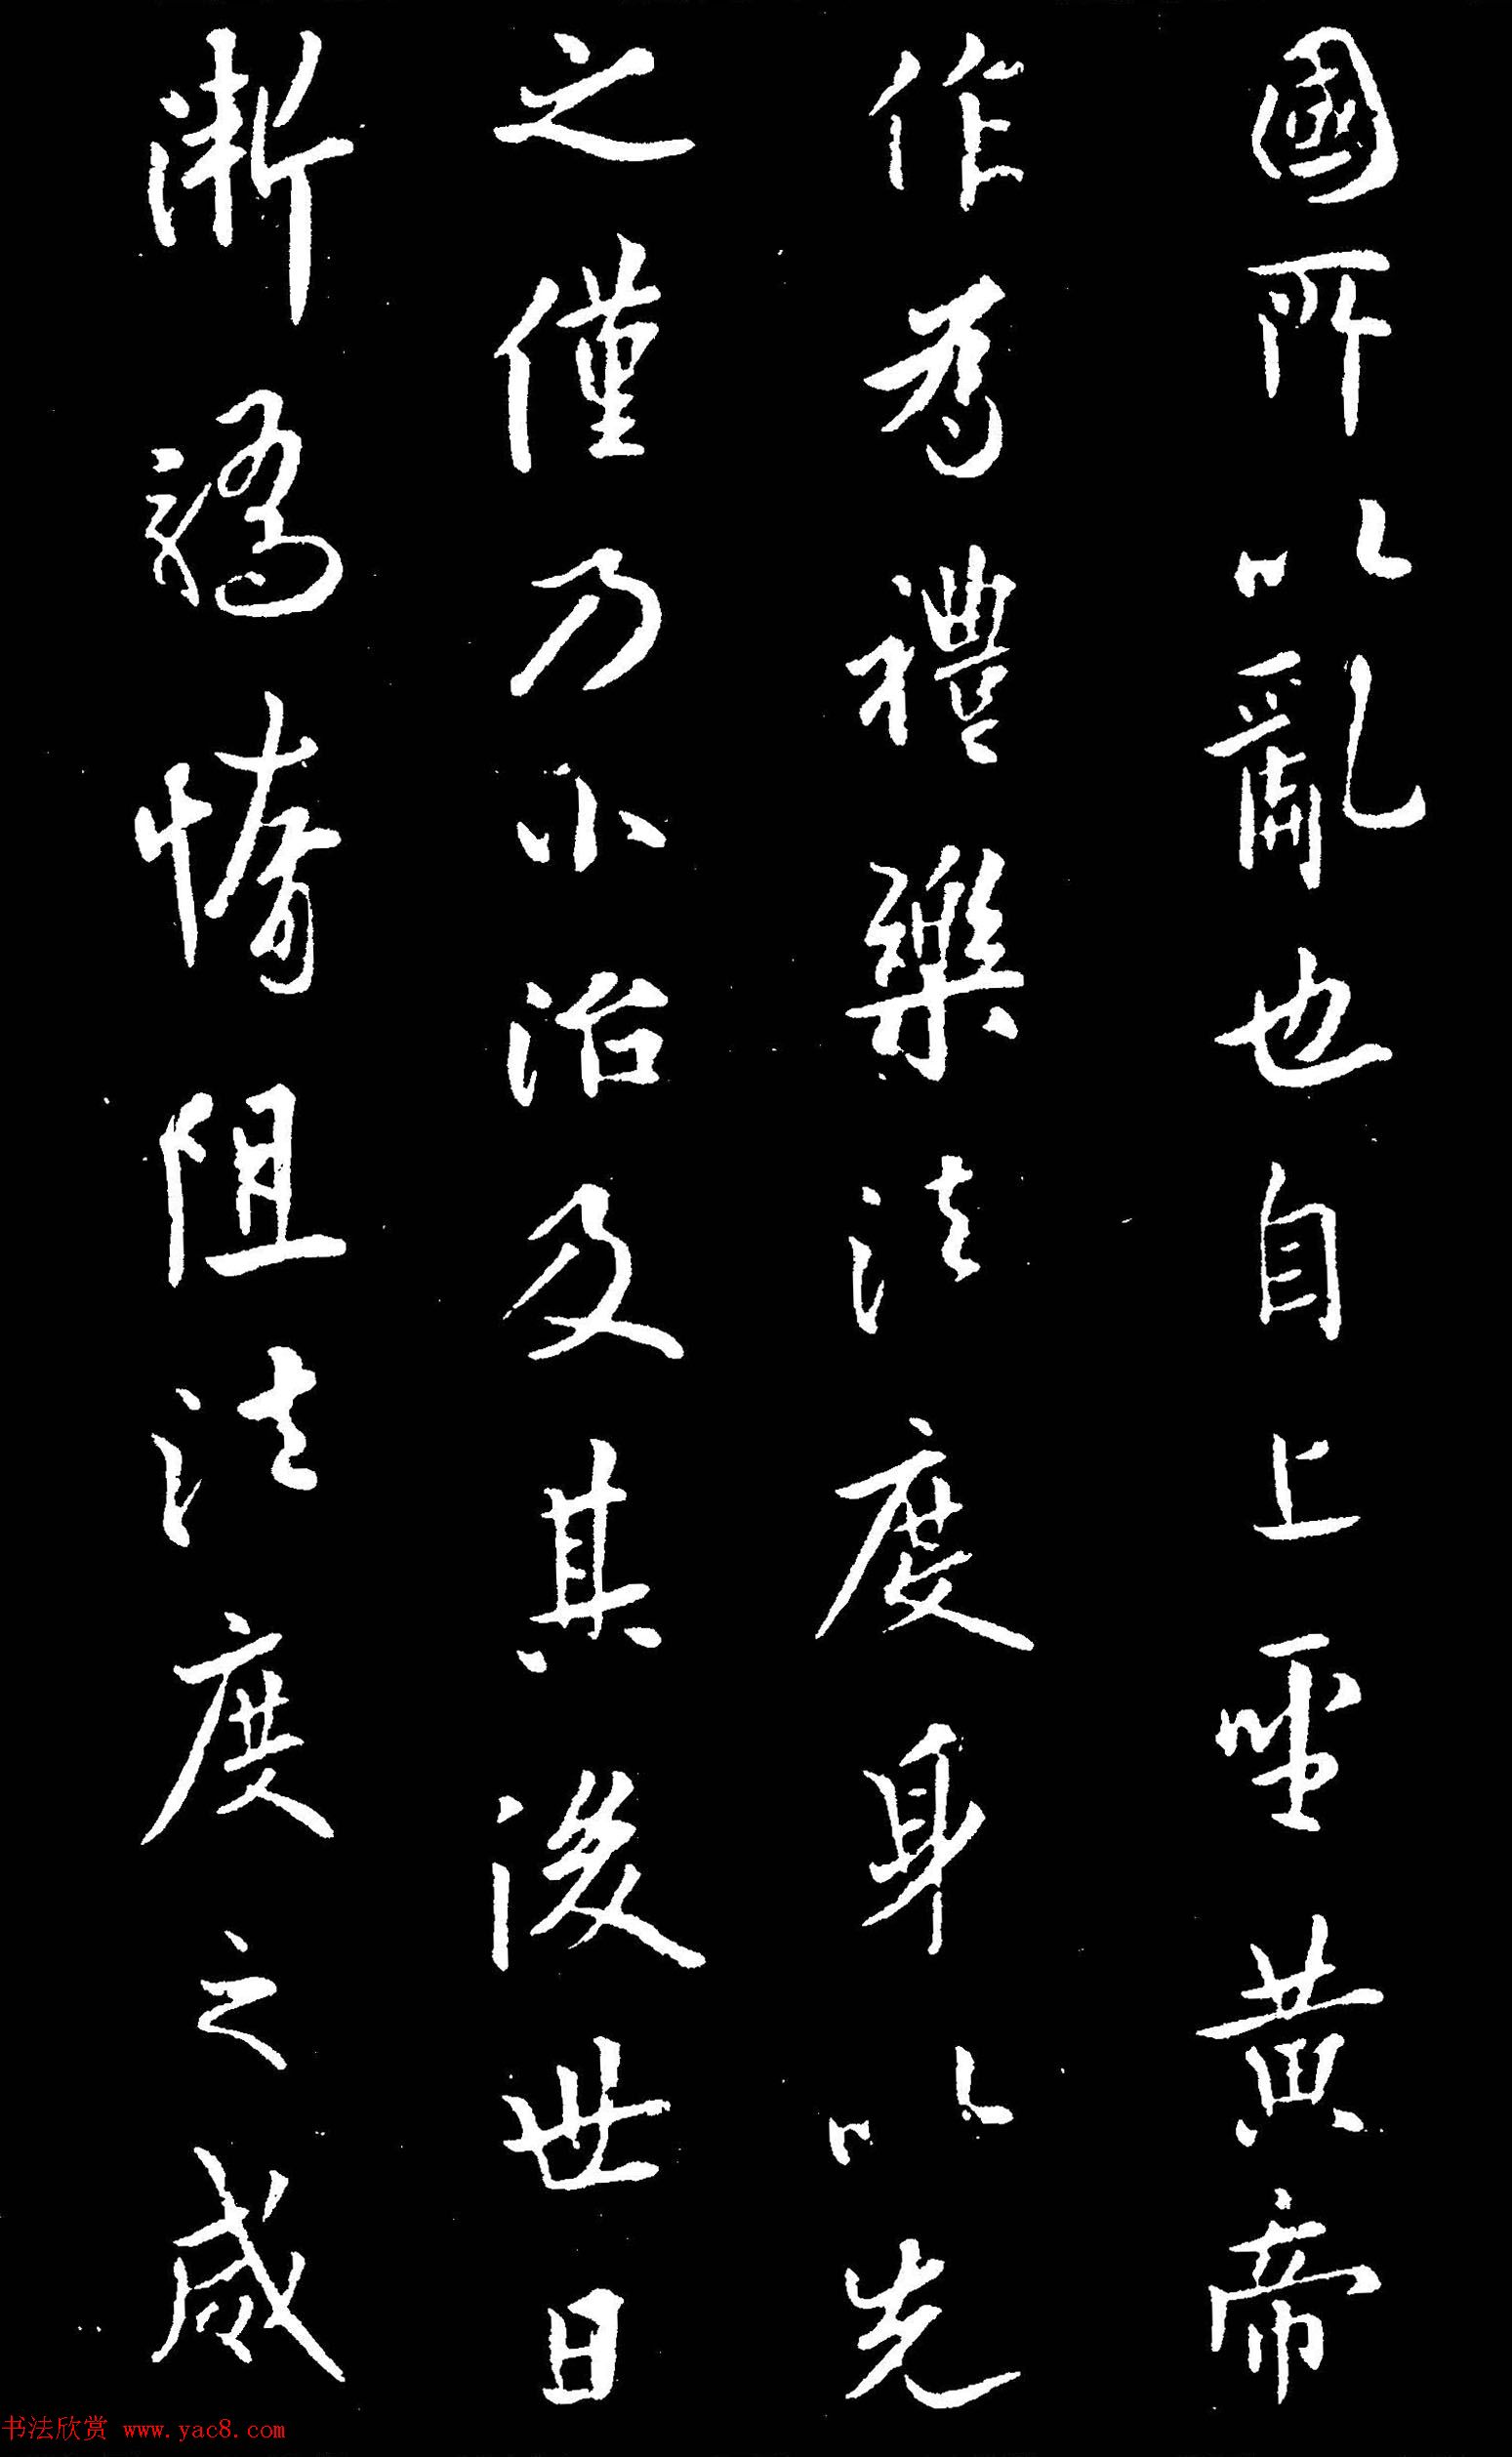 國所以亂也自上聖黃帝
作爲禮樂法度身以先
之僅乃小治及其後世日
漸驕惰阻法度之威
书法欣赏 www.yac8.com